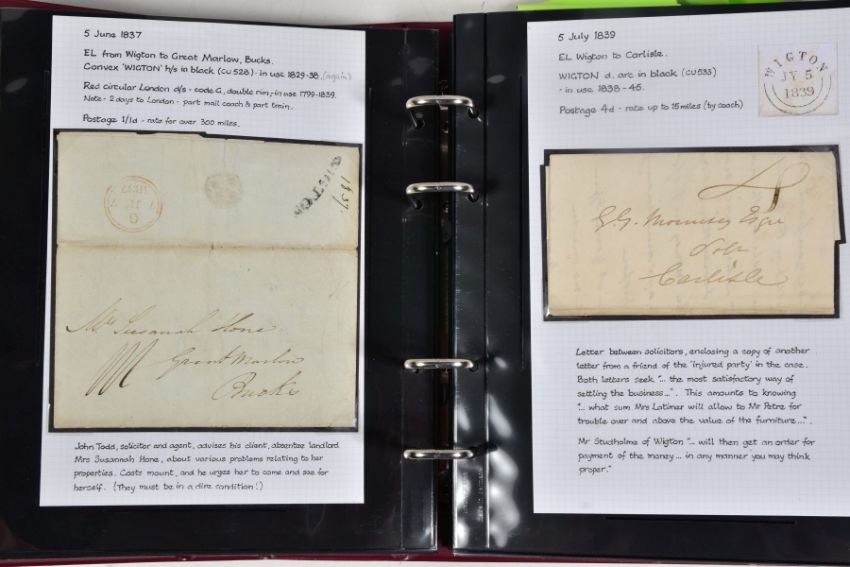 5 June 1837
EL from Wigton to Great Marlow, Bucks.
Convex 'WIGTON' h/s in black (CU 528) - in use 1829-38. (again)
Red circular London d/s - code G, double rim, - in use 1799-1839.
Note - 2 days to London - part mail coach & part train.
Postage 1/1d - rate for over 300 miles.
WIGTON
1837
G
Mrs Susannah Hone
Great Marlow
Bucks
John Todd, solicitor and agent, advises his client, absentee landlord
Mrs Susannah Hone, about various problems relating to her
properties. Costs mount, and he urges her to come and see for
herself. (They must be in a dire condition!)
5 July 1839
EL Wigton to Carlisle.
WIGTON d. arc in black (CU533)
- in use 1838-45.
Postage 4d - rate up to 15 miles (by coach)
WIGTON
JY 5
1839
4
Esqre
Solr
Carlisle
Letter between solicitors, enclosing a copy of another
letter from a friend of the 'injured party' in the case.
Both letters seek "... the most satisfactory way of
settling the business...". This amounts to knowing
"... what sum Mrs Latimer will allow to Mr Petre for
trouble over and above the value of the furniture...".
Mr Studholme of Wigton "... will then get an order for
payment of the money... in any manner you may think
proper."